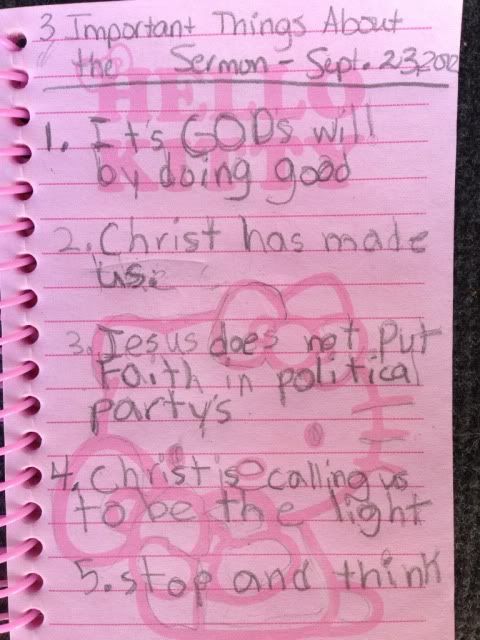 3 Important Things About
the Sermon - Sept. 23, 2012
HELLO
KITTY
1. It's GOD's will
by doing good
2. Christ has made
us.
3. Jesus does not Put
Faith in political
party's
4. Christ is calling us
to be the light
5. stop and think